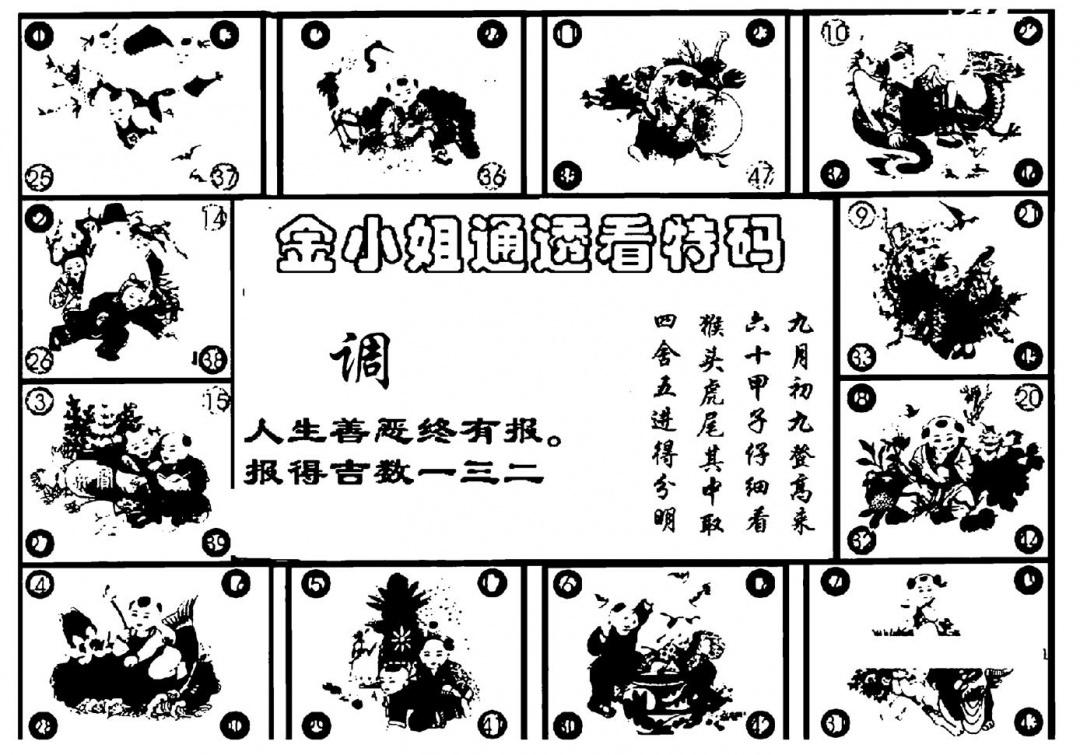 10
25
37
36
47
2
14
26
38
3
15
27
39
9
21
33
8
20
32
44
金小姐通透看特码
调
人生善恶终有报。
报得吉数一三二
九月初九登高来
六十甲子仔细看
猴头虎尾其中取
四舍五进得分明
4
28
5
29
41
6
30
42
31
43